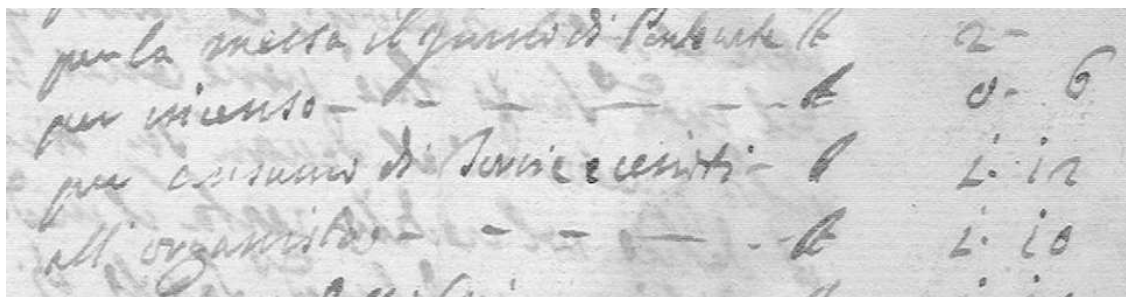 per la messa il giorno di Pentecoste £ 2 -
per incenso - - - - - - £ 0 - 6
per consumo di e cerioti - £ 1. 12
all'organista - - - - - £ 1. 10